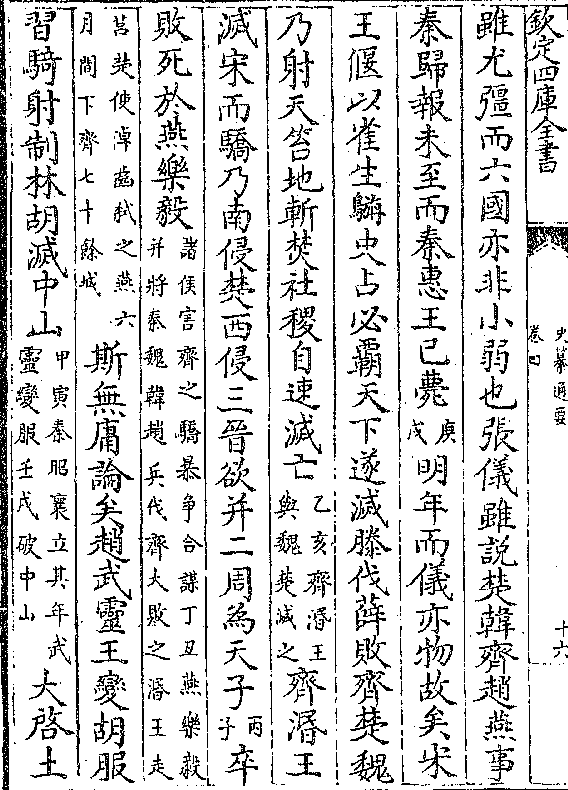 欽定四庫全書
史纂通要
卷四
十六
雖尤彊而六國亦非小弱也張儀雖説楚韓齊趙燕事
秦歸報未至而秦惠王已薨庚戌明年而儀亦物故矣宋
王偃以雀生史占必霸天下遂滅滕伐薛敗齊楚魏
乃射天笞地斬焚社稷自速滅亡乙亥齊湣王與魏楚滅之齊湣王
滅宋而驕乃南侵楚西侵三晉欲并二周為天子丙子卒
敗死於燕樂毅諸侯害齊之驕暴争合謀丁丑燕樂毅并將秦魏韓趙兵伐齊大敗之湣王走
莒楚使淖齒弑之燕六月間下齊七十餘城斯無庸論矣趙武靈王變胡服
習騎射制林胡滅中山甲寅秦昭襄立其年武靈變服壬戌破中山大啓土